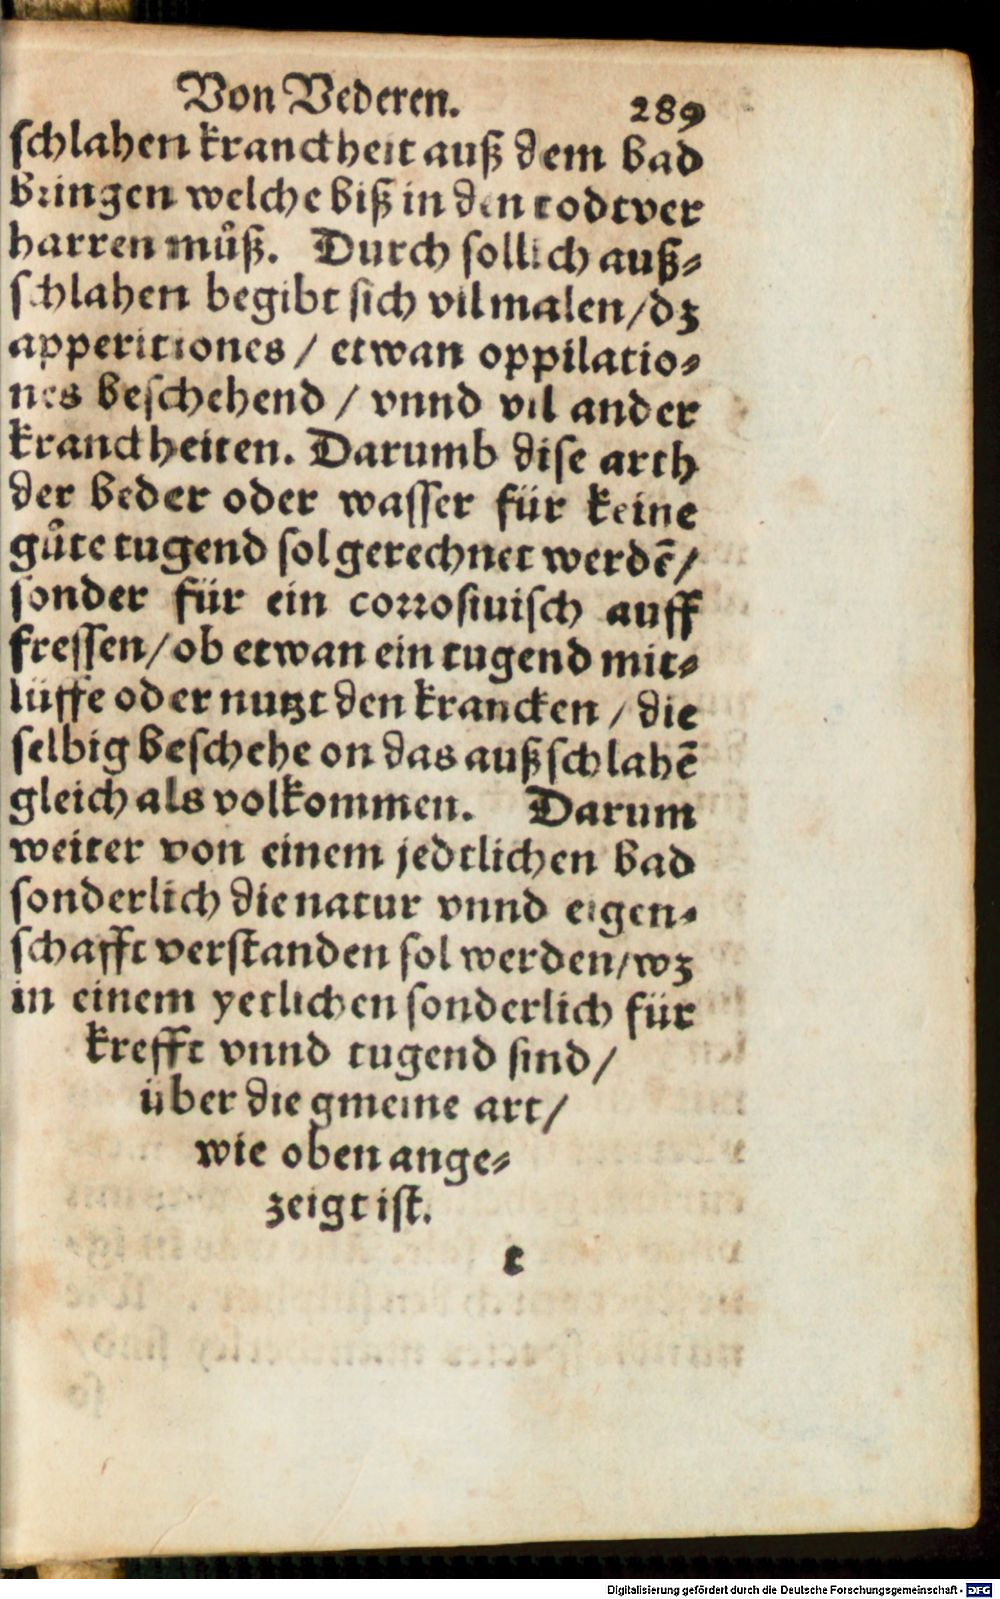 Von Bederen. 289
schlahen kranckheit auß dem bad
bringen welche biß in den todt ver
harren můß. Durch sollich auß⸗
schlahen begibt sich vil malen / dz
apperitiones / etwan oppilatio⸗
nes beschehend / vnnd vil ander
kranckheiten. Darumb dise arth
der beder oder wasser für keine
gůte tugend sol gerechnet werdē /
sonder für ein corrosiuisch auff
fressen / ob etwan ein tugend mit⸗
lüffe oder nutzt den krancken / die
selbig beschehe on das außschlahē
gleich als volkommen. Darum
weiter von einem jedtlichen bad
sonderlich die natur vnnd eigen⸗
schafft verstanden sol werden / wz
in einem yetlichen sonderlich für
krefft vnnd tugend sind /
über die gmeine art /
wie oben ange⸗
zeigt ist.
t
Digitalisierung gefördert durch die Deutsche Forschungsgemeinschaft - DFG